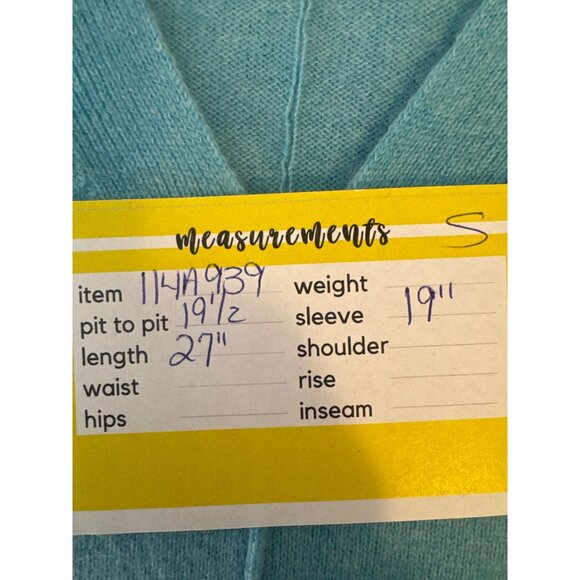 measurements S
item 114A939
pit to pit 19 1/2
length 27"
waist
hips
weight
sleeve 19"
shoulder
rise
inseam